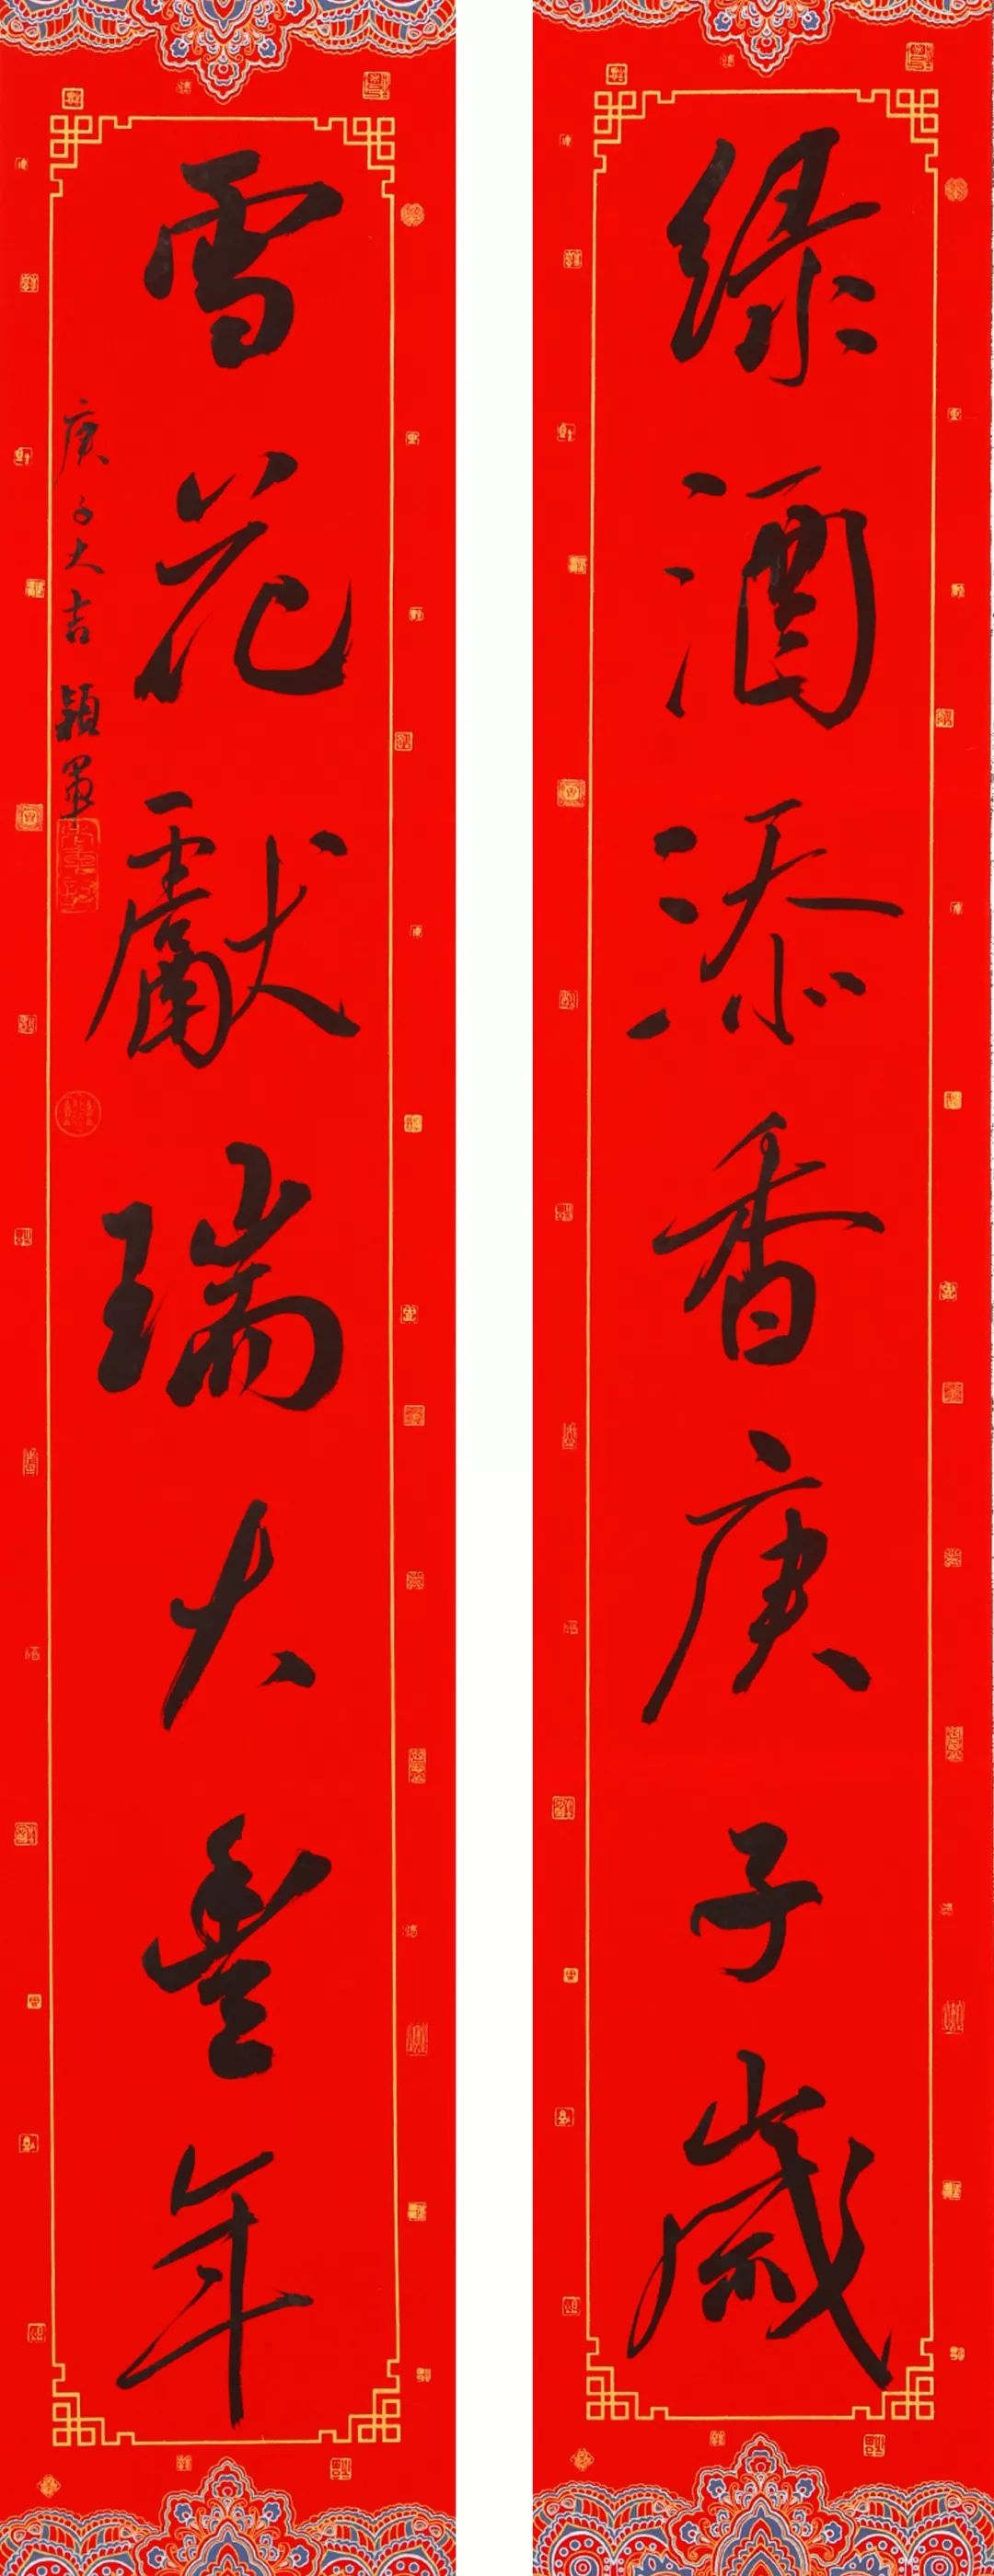 綠酒添香庚子歲
雪花獻瑞大豐年
庚子大吉 穎軍